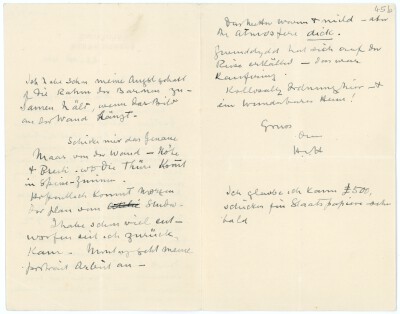 Ich habe schon meine Angst gehabt
of die Rahm der Baronin zu-
samen hält, wenn das Bild
an der Wand hängt.
Schicke mir das genaue
Maas von der Wand – Höhe
& Breite. wo die Thüre kommt
in Speise-Zimmer.
Hoffentlich kommt morgen
der plan vom Stube.
Ich habe schon viel ent-
worfen seit ich zurück
kam. Montag geht meine
portrait Arbeit an –
456
Das Wetter warm & mild – aber
die Atmosfere dick.
hat sich auf der
Reise erkältet – das arme
Kollosale Ordnung hier – &
ein wunderbares Heim!
Gruss
Dein
HyH
Ich glaube ich kann £500,
schicken für Staatspapiere sehr
bald